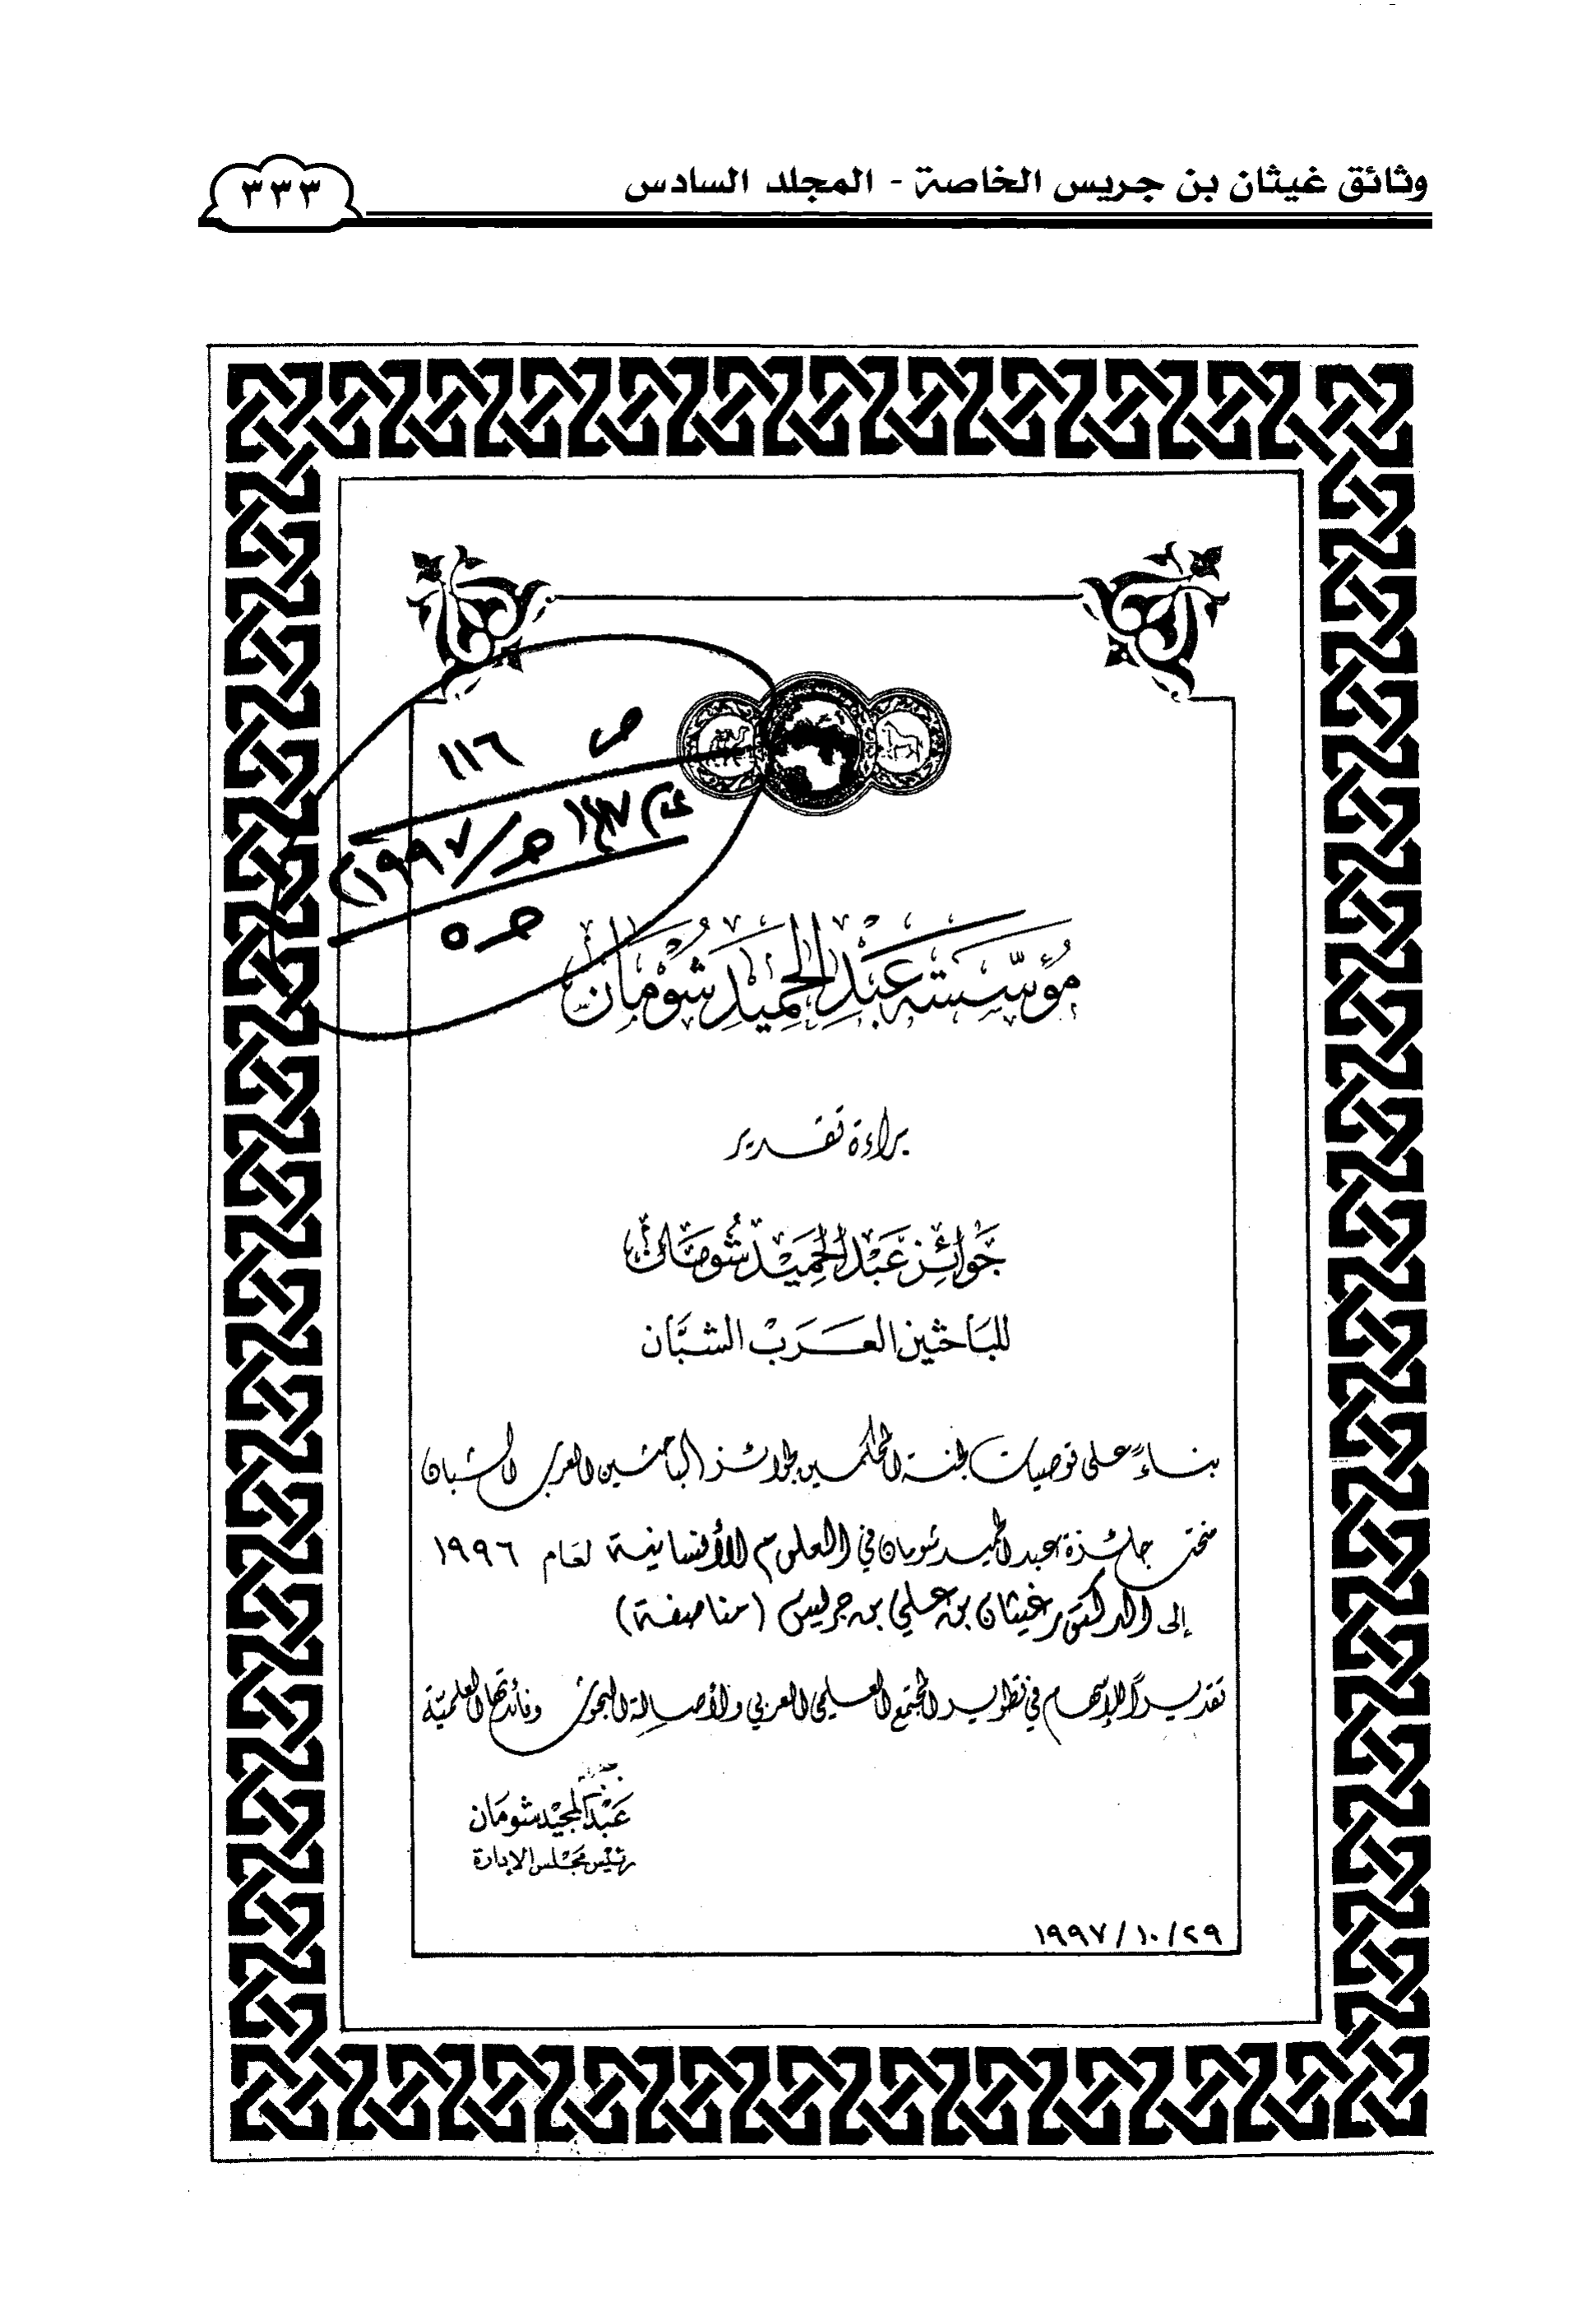 وثائق غيثان بن جريس الخاصة - المجلد السادس
٣٣٣
ص ١١٦
١٩٩٧)
مؤَسّسَة عَبْدِ الحَمِيد شُومَان
براءة تقدير
جَوائِز عَبْد الحَمِيْد شُومَان
للبَاحثين العَرَبْ الشبَّان
بناءً على توصيات لجنة المحكمين لجوائز الباحثين العرب الشبان
منحت جائزة عبد الحميد شومان في العلوم الأنسانية لعَام ١٩٩٦
إلى الدكتور غيثان بن علي بن جريس (مناصفة)
تقديراً للإسهام في تطوير المجتمع العلمي العربي ولأصالة البحوث وفائدتها العلميّة
عَبْد المجيْد شومَان
رئيْس مَجْلس الإدارة
١٩٩٧/١٠/٢٩